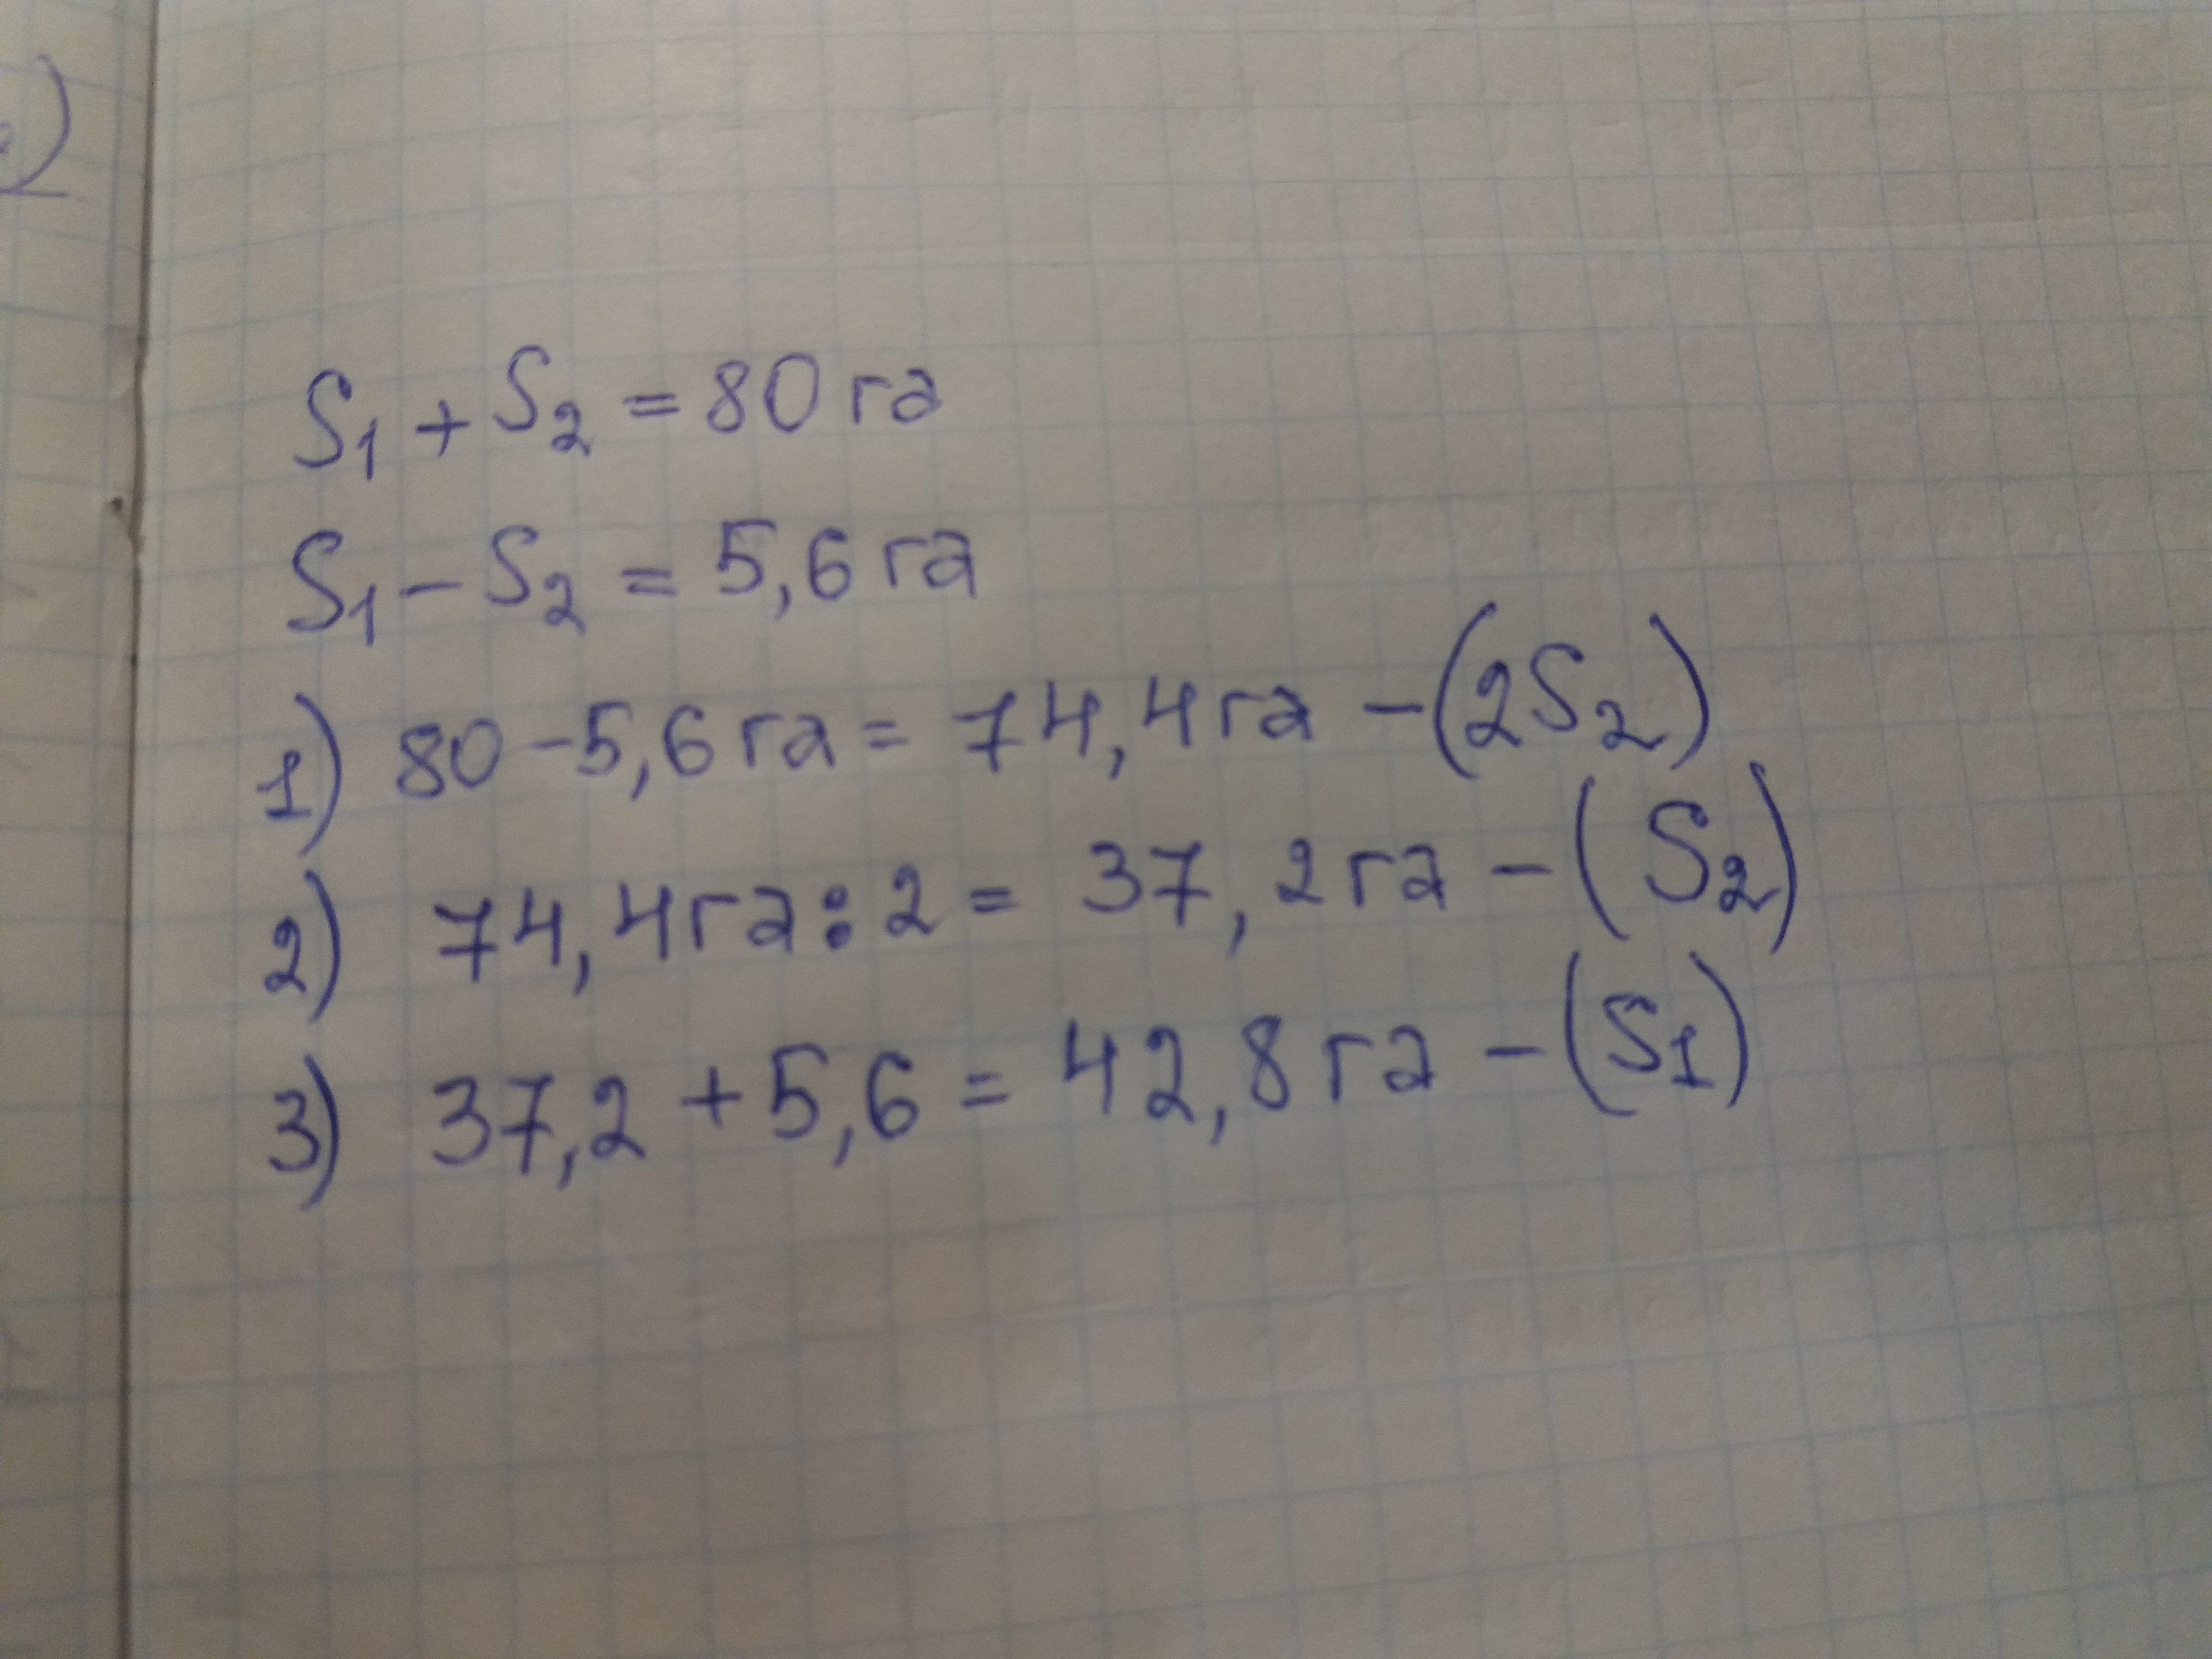 S₁ + S₂ = 80 га
S₁ - S₂ = 5,6 га
1) 80 - 5,6 га = 74,4 га - (2S₂)
2) 74,4 га : 2 = 37,2 га - (S₂)
3) 37,2 + 5,6 = 42,8 га - (S₁)